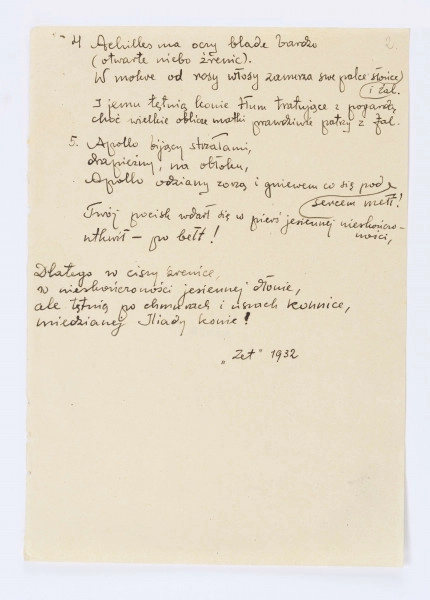 2.
4. Achilles ma oczy blade bardzo
(otwarte niebo źrenic).
W mokre od rosy włosy zanurza swe palce słońce
i żal.
I jemu tętnią konie tłum tratujące z pogardą,
choć wielkie oblicze matki prawdziwie patrzy z fal.
5. Apollo bijący strzałami,
drapieżny, na obłoku,
Apollo odziany zorzą i gniewem co się pod
sercem mełł!
Twój pocisk wdarł się w pierś jesiennej nieskończo-
ności,
utkwił – po bełt!
Dlatego w ciszy źrenice,
w nieskończoności jesiennej dłonie,
ale tętnią po chmurach i uszach konnice,
miedzianej Iliady konie!
„Zet" 1932